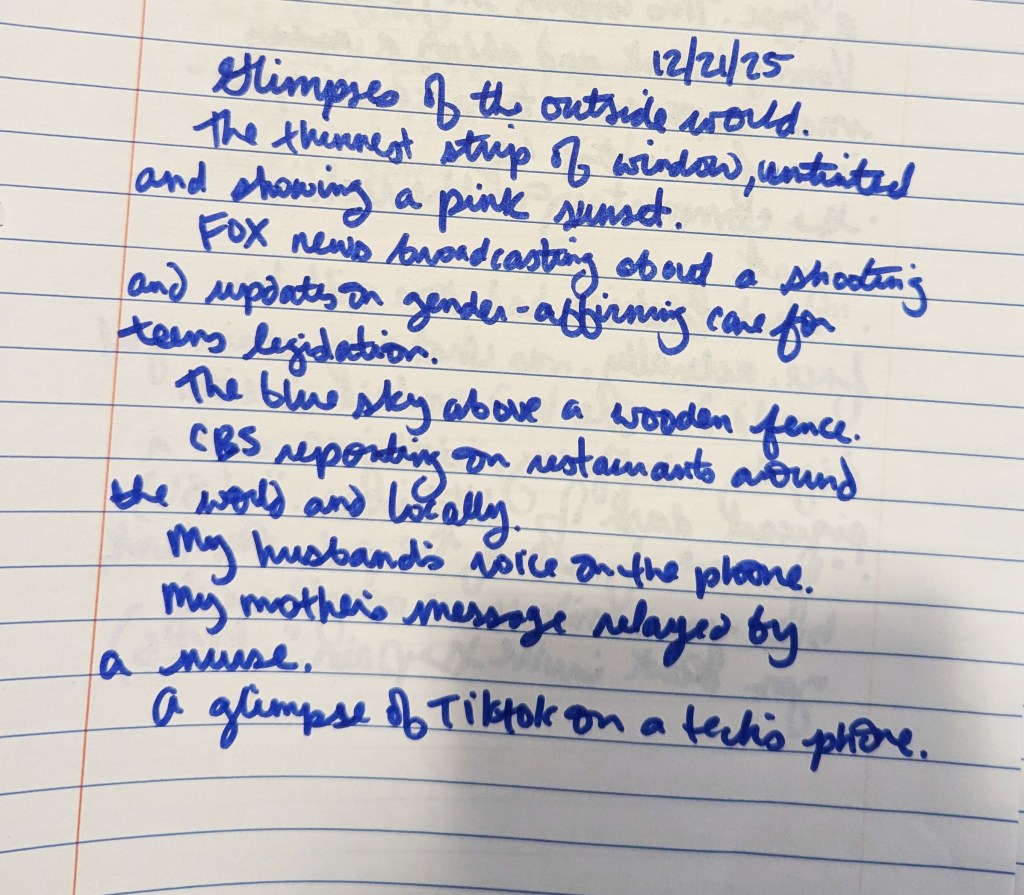 12/21/25
Glimpses of the outside world.
The thinnest strip of window, untinted
and showing a pink sunset.
FOX news broadcasting about a shooting
and updates on gender-affirming care for
teens legislation.
The blue sky above a wooden fence.
CBS reporting on restaurants around
the world and locally.
My husband's voice on the phone.
My mother's message relayed by
a nurse.
A glimpse of Tiktok on a tech's phone.